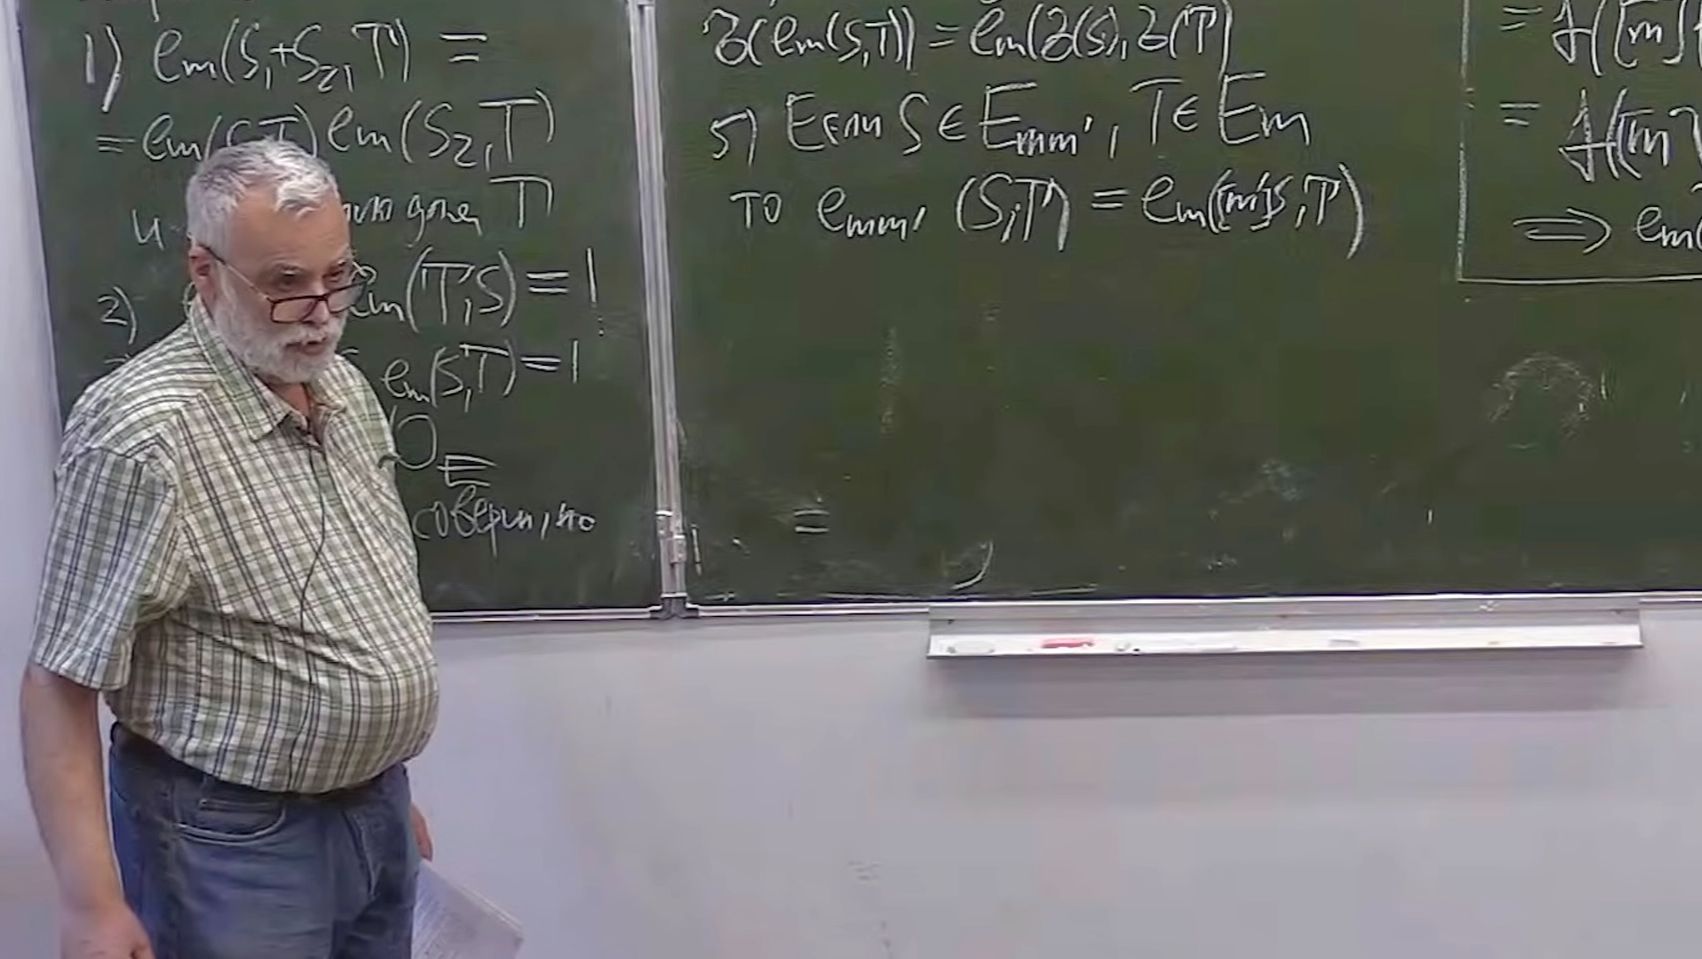 1) em(S1+S2,T) =
= em(S,T) em(S2,T)
и T
2) em(T,S) = 1
em(S,T) = 1
O_E
соверш, но
(em(S,T)) = em( (S), (T)
5) Если S ∈ Emm', T ∈ Em
то emm' (S,T) = em([m']S,T)
=
= f([m]
= f([m]
⟹ em(